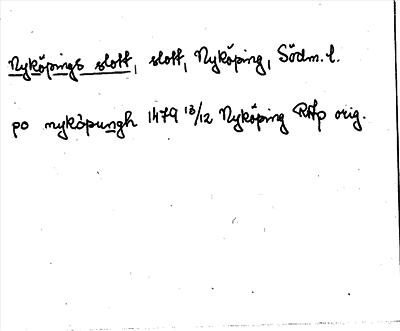 Nyköpings slott, slott, Nyköping, Södm. l.
po nyköpungh 1479 13/12 Nyköping RAp orig.